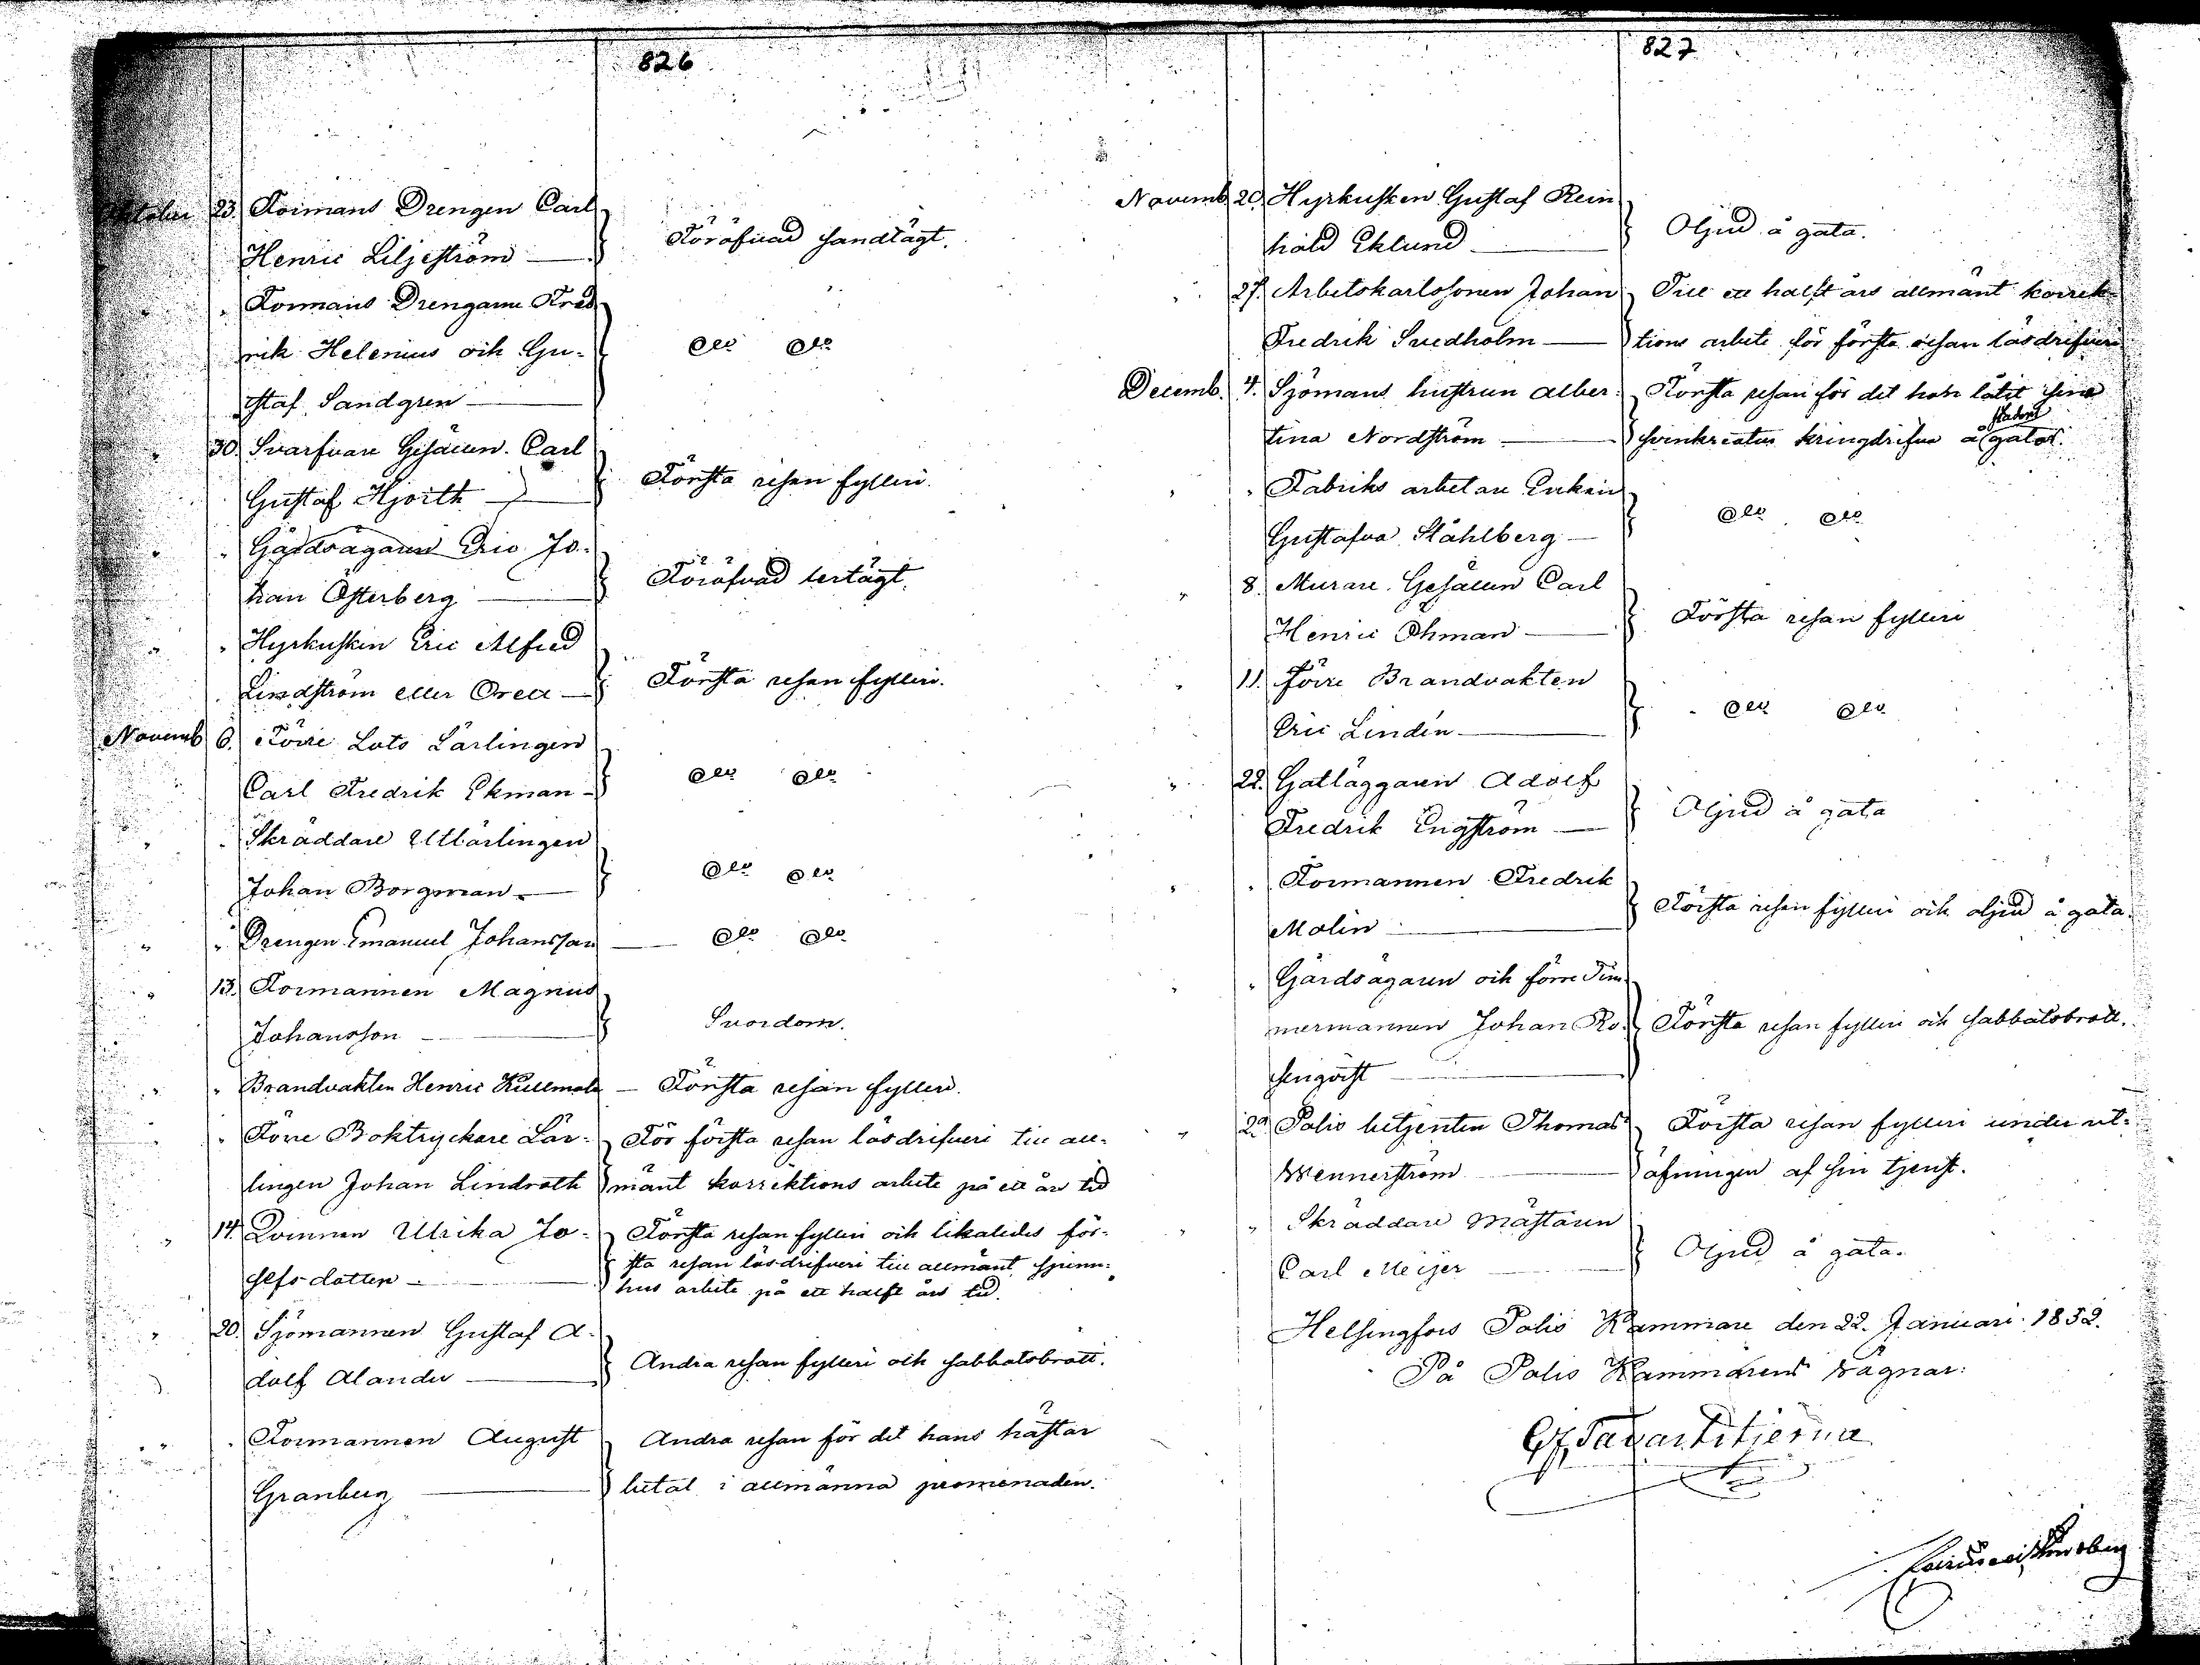 826
Oktober 23. Formans Drengen Carl
Henric Liljeström — Föröfvad sandtägt.
" Formans Drengarne Fred
rik Helenius och Gu-
staf Sandgren — Dito Dito
30. Svarfvare Gesällen Carl
Gustaf Hjorth — Första resan fylleri.
" Gårdsägaren Eric Jo-
han Österberg — Föröfvad lertägt.
" Hyrkusken Eric Alfred
Lindström eller Orell — Första resan fylleri.
Novemb 6. Förre Lots Lärlingen
Carl Fredrik Ekman — Dito Dito
" Skräddare Utlärlingen
Johan Borgman — Dito Dito
" Drengen Emanuel Johansson — Dito Dito
13. Formannen Magnus
Johansson — Svordom.
" Brandvakten Henric Kullmola — Första resan fylleri.
" Förre Boktryckare Lär- För första resan lösdrifveri till all-
lingen Johan Lindroth mänt korrektions arbete på ett år tid
14. Qvinnan Ulrika Jo- Första resan fylleri och likaledes för-
sefsdotter — sta resan lösdrifveri till allmänt spinn-
hus arbete på ett halft års tid.
20. Sjömannen Gustaf A-
dolf Alander — Andra resan fylleri och sabbatsbrott.
" Formannen August Andra resan för det hans hästar
Granberg — betat i allmänna promenaden.
827
Novemb 20. Hyrkusken Gustaf Rein
hold Eklund — Oljud å gata.
" 27. Arbetskarlssonen Johan Till ett halft års allmänt korrek-
Fredrik Suedholm — tions arbete för första resan lösdrifveri
Decemb. 4. Sjömans hustrun Alber- Första resan för det hon låtit sina
tina Nordström — svinkreatur kringdrifva å stadens gator.
" Fabriks arbetare Enkan
Gustafva Ståhlberg — Dito Dito
" 8. Murare Gesällen Carl
Henric Öhman — Första resan fylleri
" 11. Förre Brandvakten
Eric Lindén — Dito Dito
" 22. Gatläggaren Adolf
Fredrik Engström — Oljud å gata
" Formannen Fredrik
Molin — Första resan fylleri och oljud å gata.
" Gårdsägaren och förre Tim
mermannen Johan Ro- Första resan fylleri och sabbatsbrott.
senqvist —
" 29. Polis betjenten Thomas Första resan fylleri under ut-
Wennerström — öfningen af sin tjenst.
" Skräddare Mästaren
Carl Meijer — Oljud å gata.
Helsingfors Polis Kammare den 22. Januari 1852.
På Polis Kammarens vägnar: